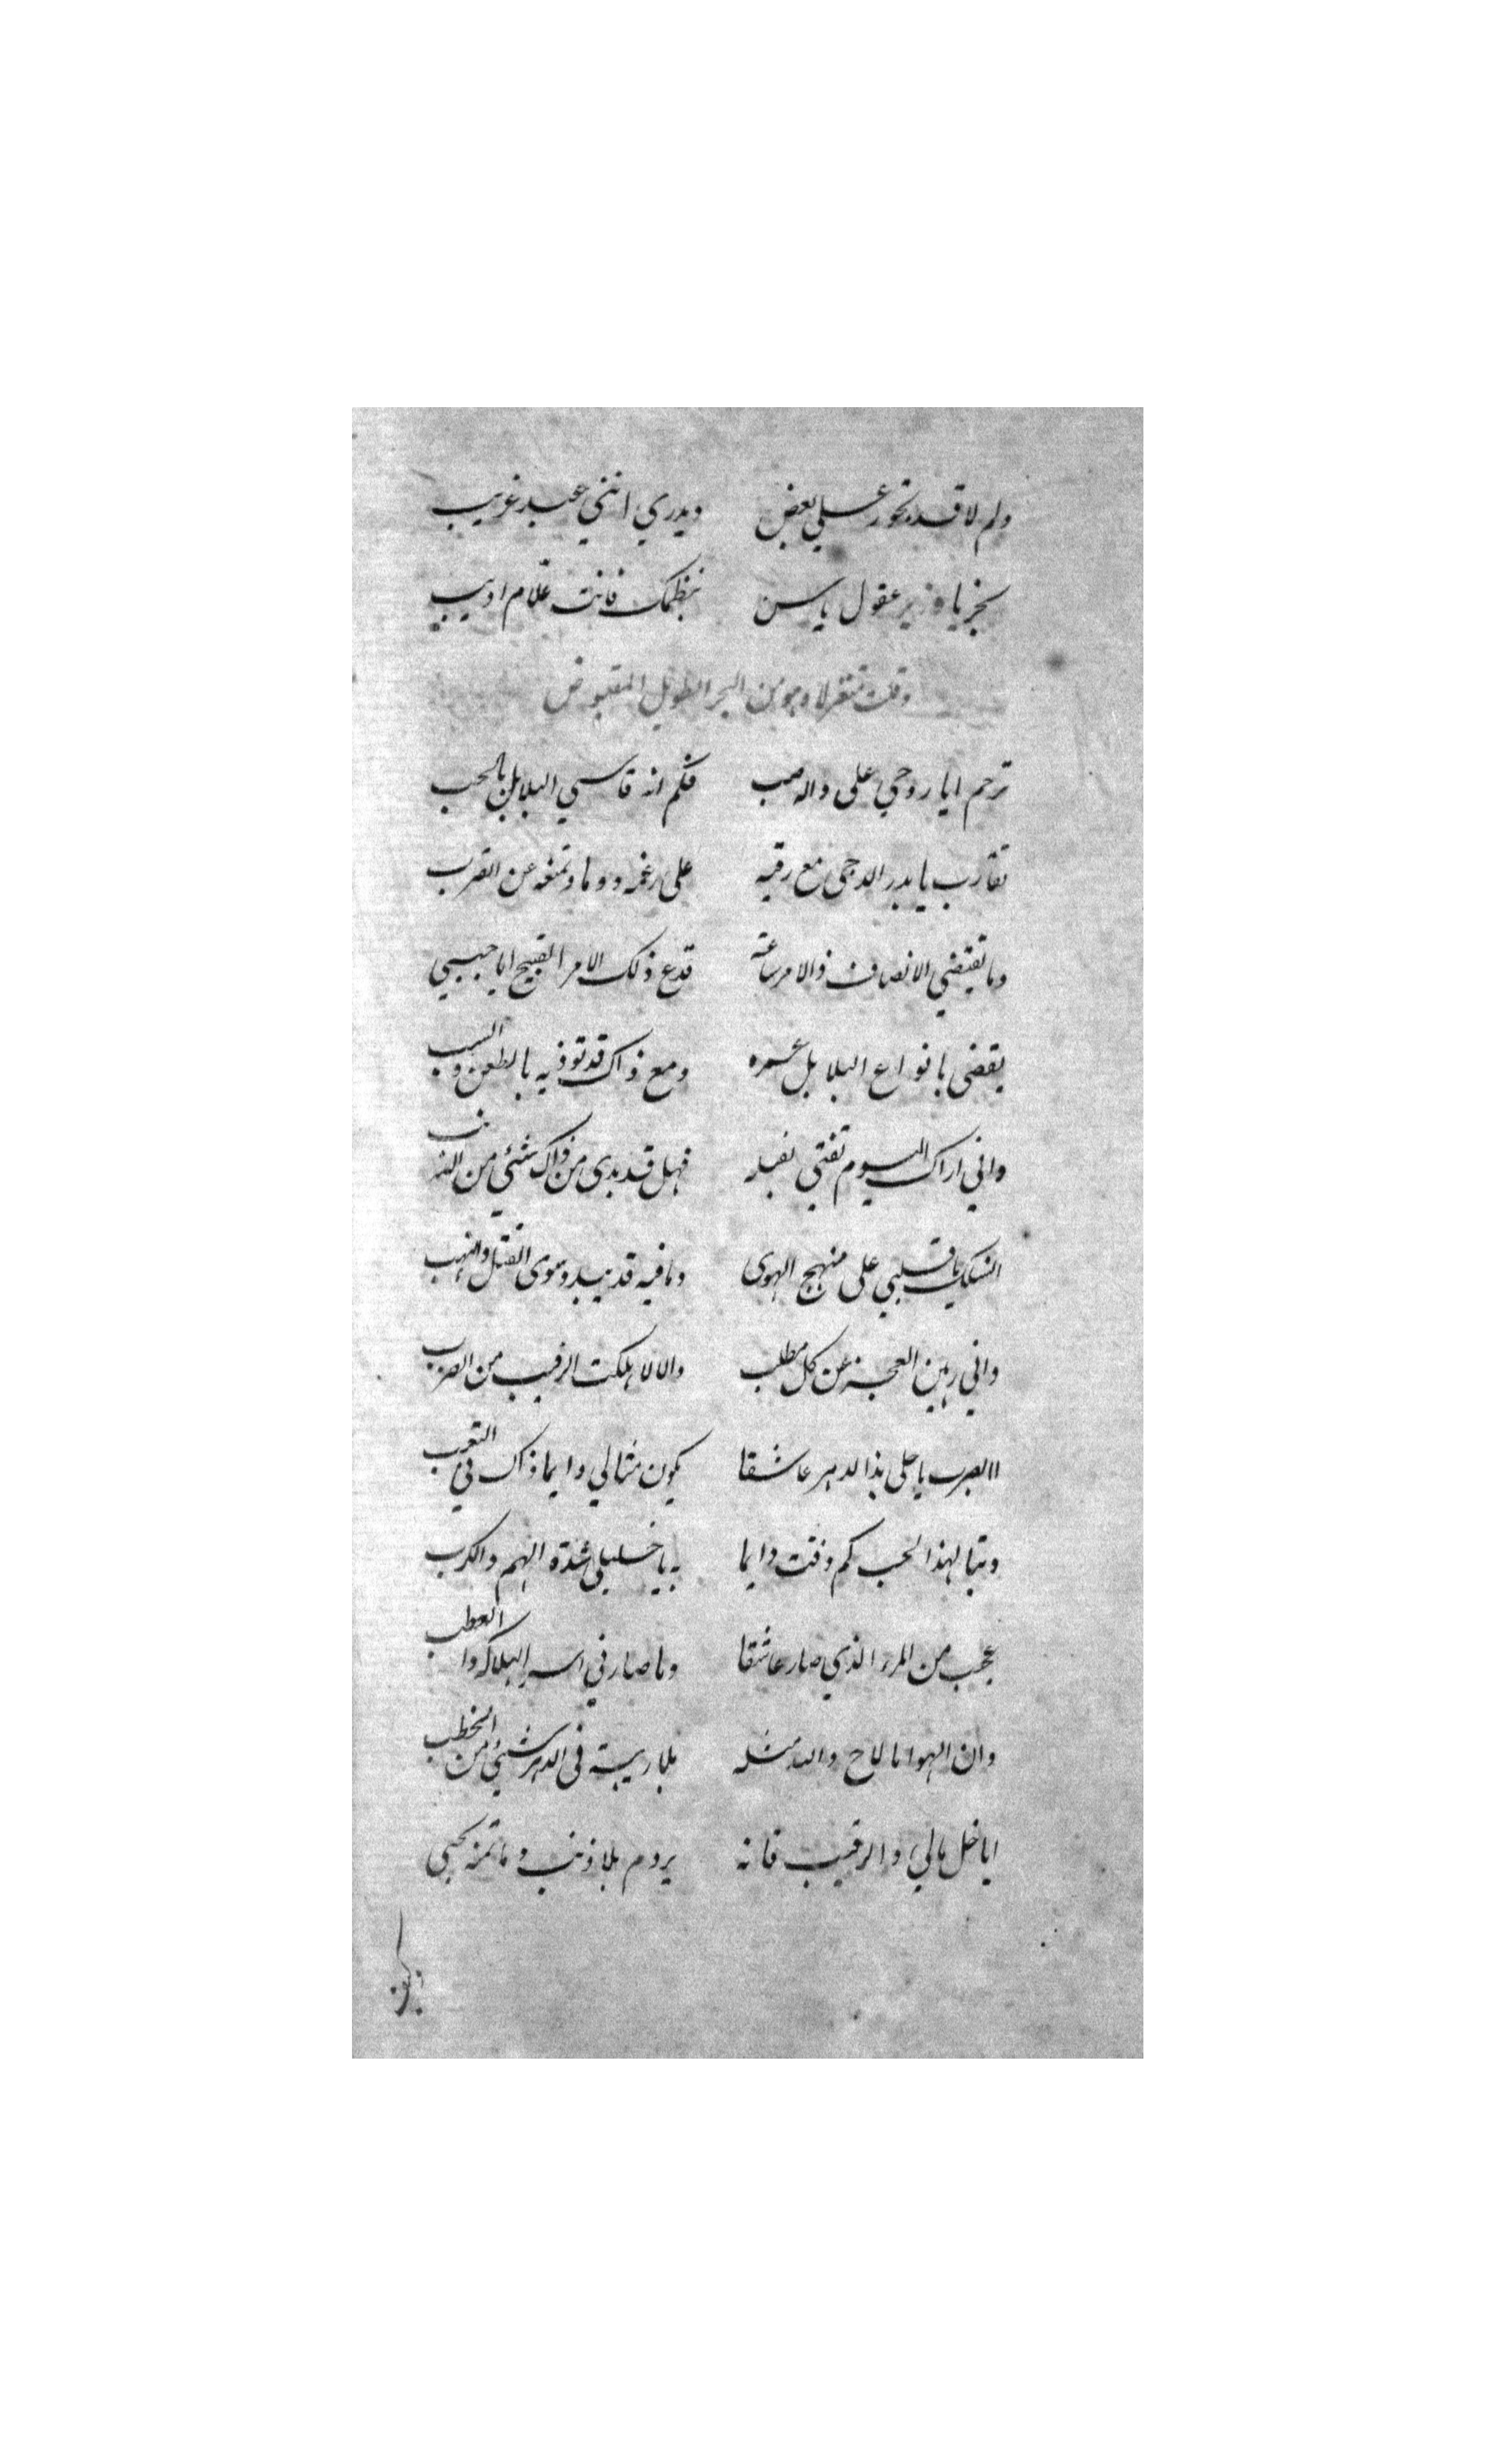 ولم لا قد تجور علي بعض ويدري انني عبد غريب
بخر يا وزير عقول ياسن بنظمك فانت علام اديب
وقلت متغزلا وهو من البحر الطويل المقبوض
ترحم ايا روحي على واله صب فكم انه قاسي البلابل بالحب
تقارب يا بدر الدجى مع رقيبه على رغمه دوما وتمنعه عن القرب
وما تقتضي الانصاف ذا الامر ساعة فدع ذلك الامر القبيح ايا حبيبي
يقضي بانواع البلابل عمره ومع ذاك قد توذيه بالطعن والسب
واني اراك اليوم تفتي بقتله فهل قد بدى من ذاك شئي من الذنب
السلك يا قلبي على منهج الهوى وما فيه قد يبدو سوى القتل والنهب
واني رهين العجز عن كل مطلب والا لاهلكت الرقيب من الضرب
اابصرت يا خلي بذا الدهر عاشقا يكون مثالي دايما ذاك في التعب
وتبا لهذا الحب كم ذقت دايما به يا خليلي شدة الهم والكرب
عجب من المرء الذي صار عاشقا وما صار في اسر البلا والعطب
وان الهوا ما لاح والله مثله بلا ريبة في الدهر شئي من الخطب
ايا خل مالي والرقيب فانه يروم بلا ذنب